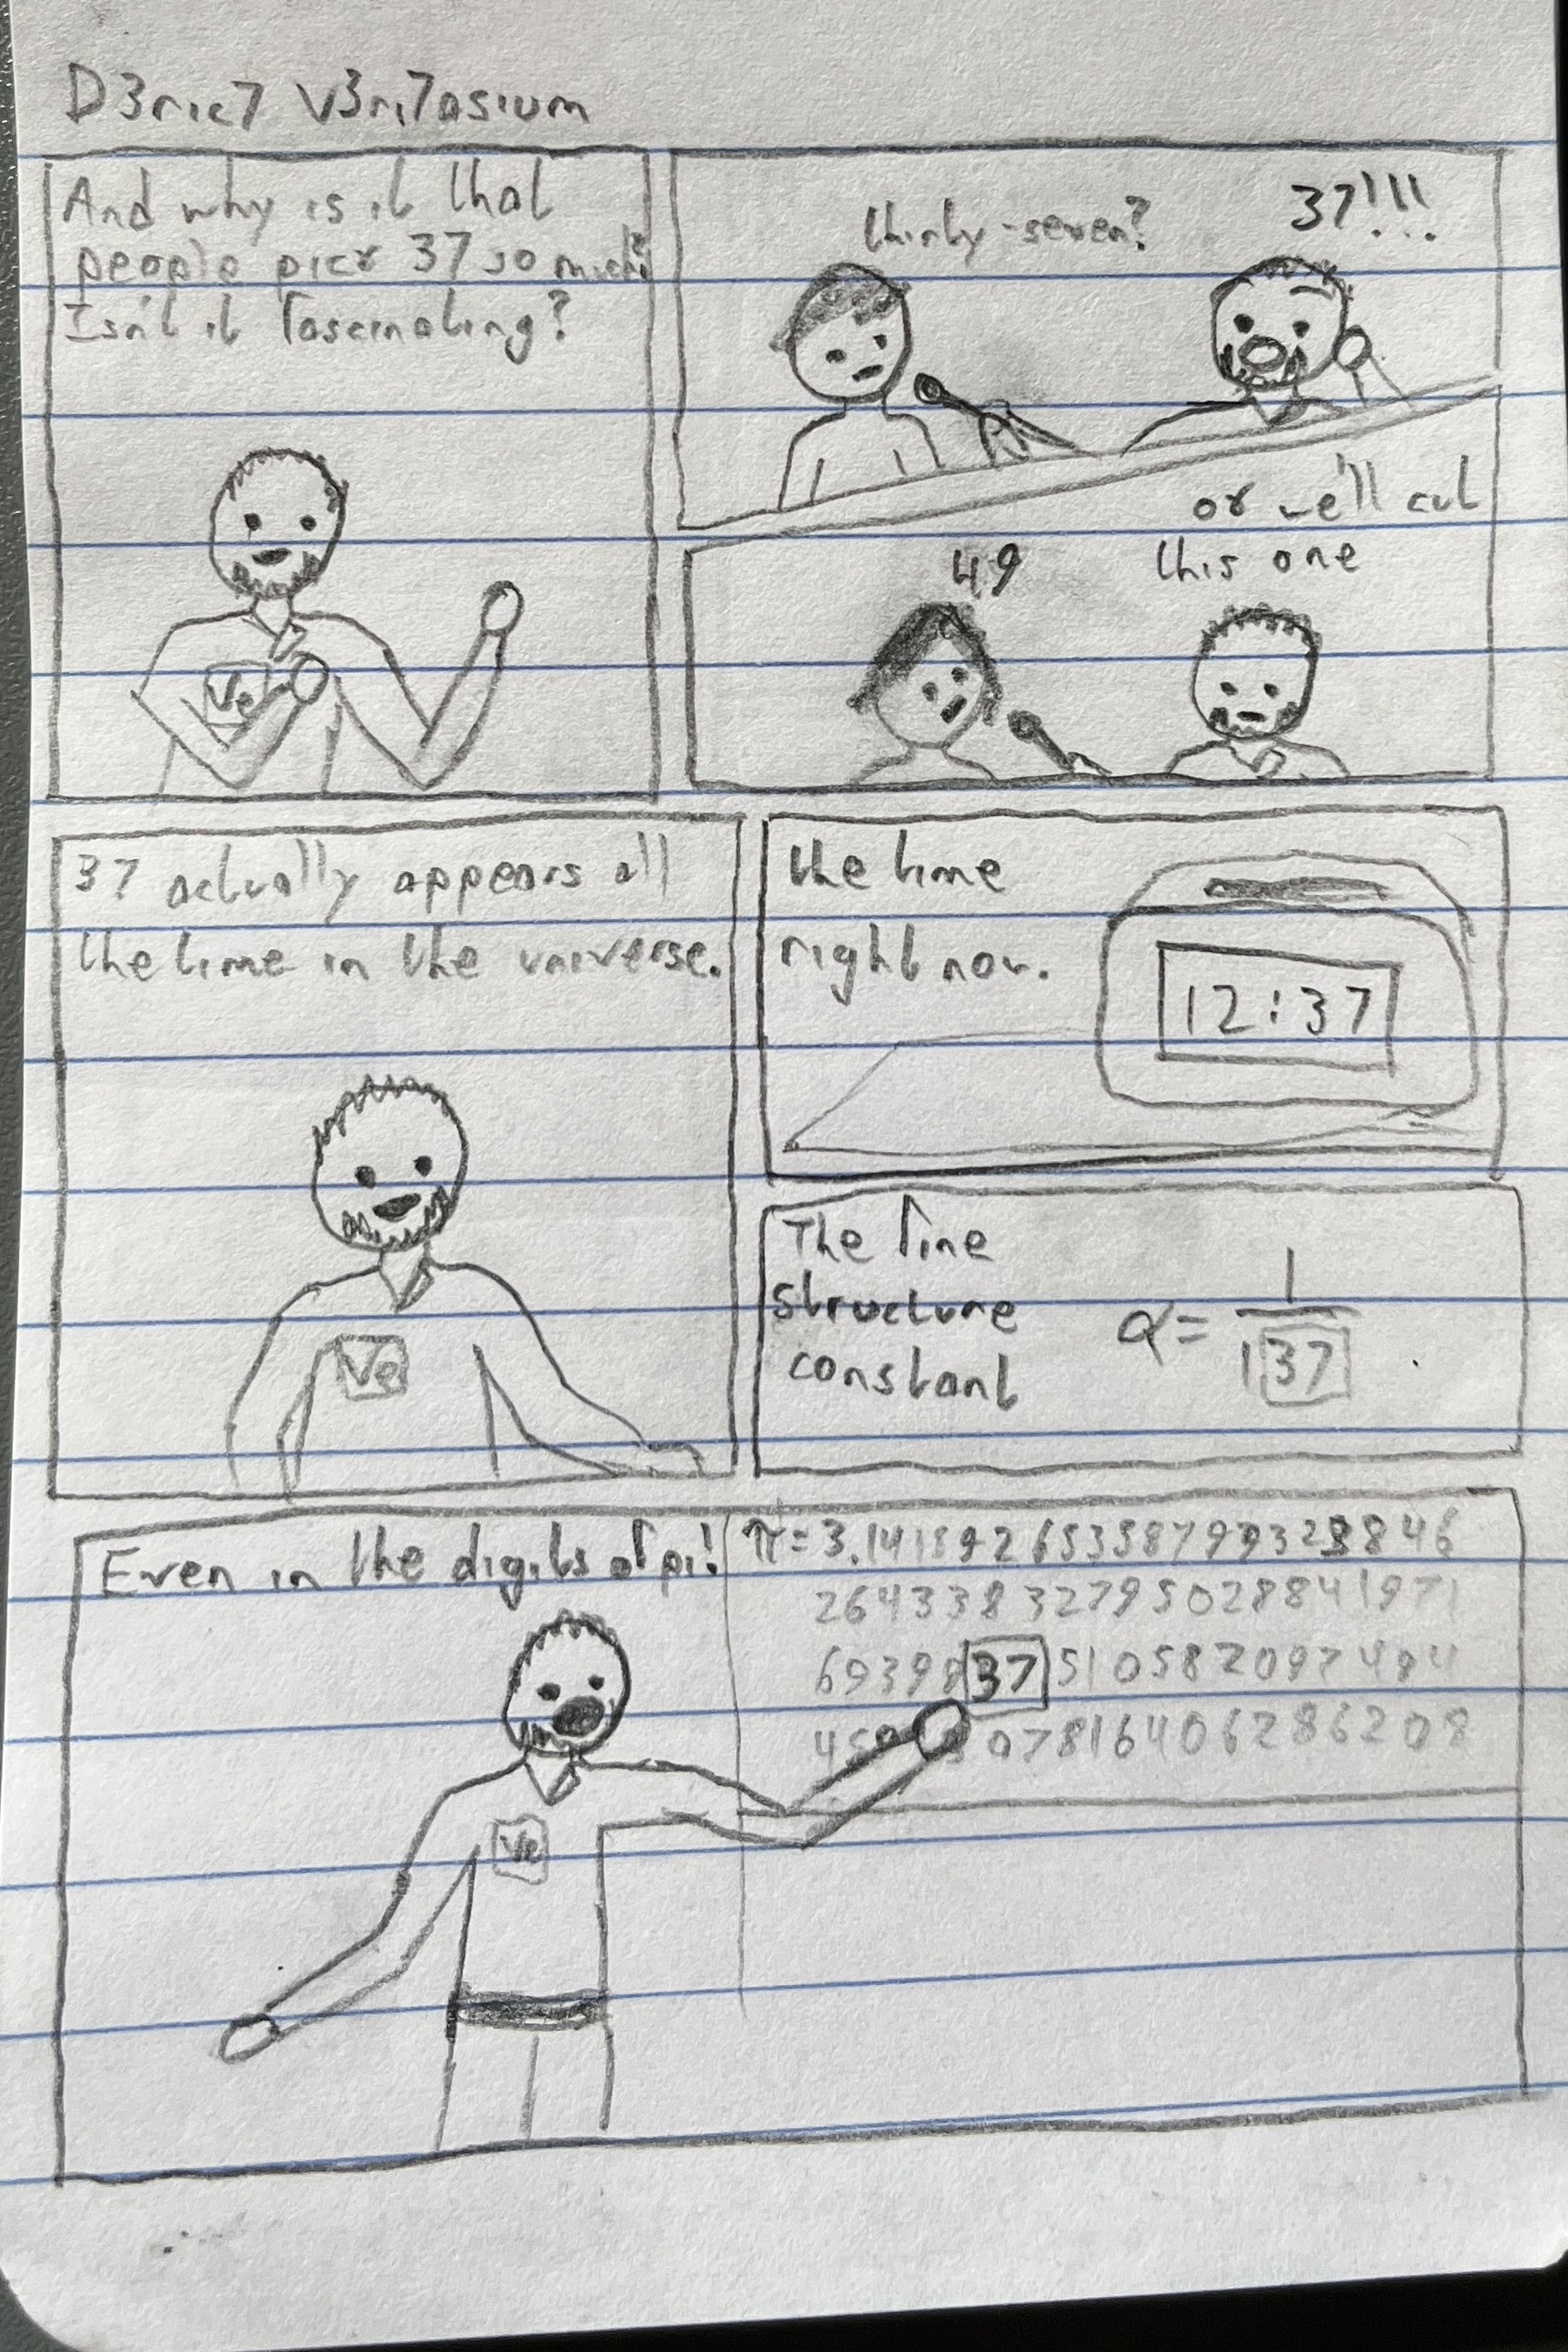 D3ric7 V3ri7asium
And why is it that
people pick 37 so much?
Isn't it fascinating?
Ve
thirty-seven?
37!!!
49
or we'll cut
this one
37 actually appears all
the time in the universe.
Ve
the time
right now.
12:37
The fine
structure
constant
α = 1/137
Even in the digits of pi!
Ve
π=3.14159265358799323846
26433832795028841971
6939837510582097494
07816406286208